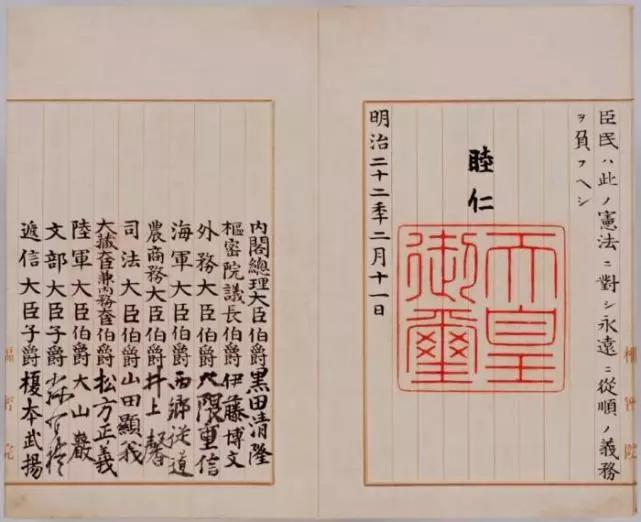 臣民ハ此ノ憲法ニ對シ永遠ニ從順ノ義務
ヲ負フヘシ
睦仁
天皇
御璽
明治二十二年二月十一日
內閣總理大臣伯爵黑田清隆
樞密院議長伯爵伊藤博文
外務大臣伯爵大隈重信
海軍大臣伯爵西鄕從道
農商務大臣伯爵井上馨
司法大臣伯爵山田顯義
大藏大臣兼內務大臣伯爵松方正義
陸軍大臣伯爵大山巖
文部大臣子爵
遞信大臣子爵榎本武揚